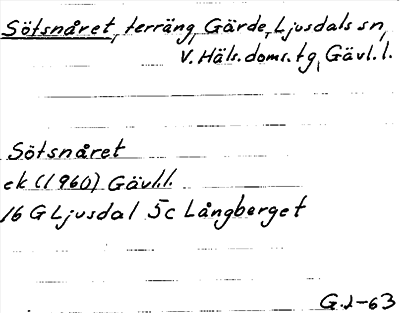 Sötsnåret, terräng, Gärde, Ljusdals sn,
V. Häls. doms. tg, Gävl. l.
Sötsnåret
ek (1960) Gävl.l.
16 G Ljusdal 5c Långberget
G.J-63